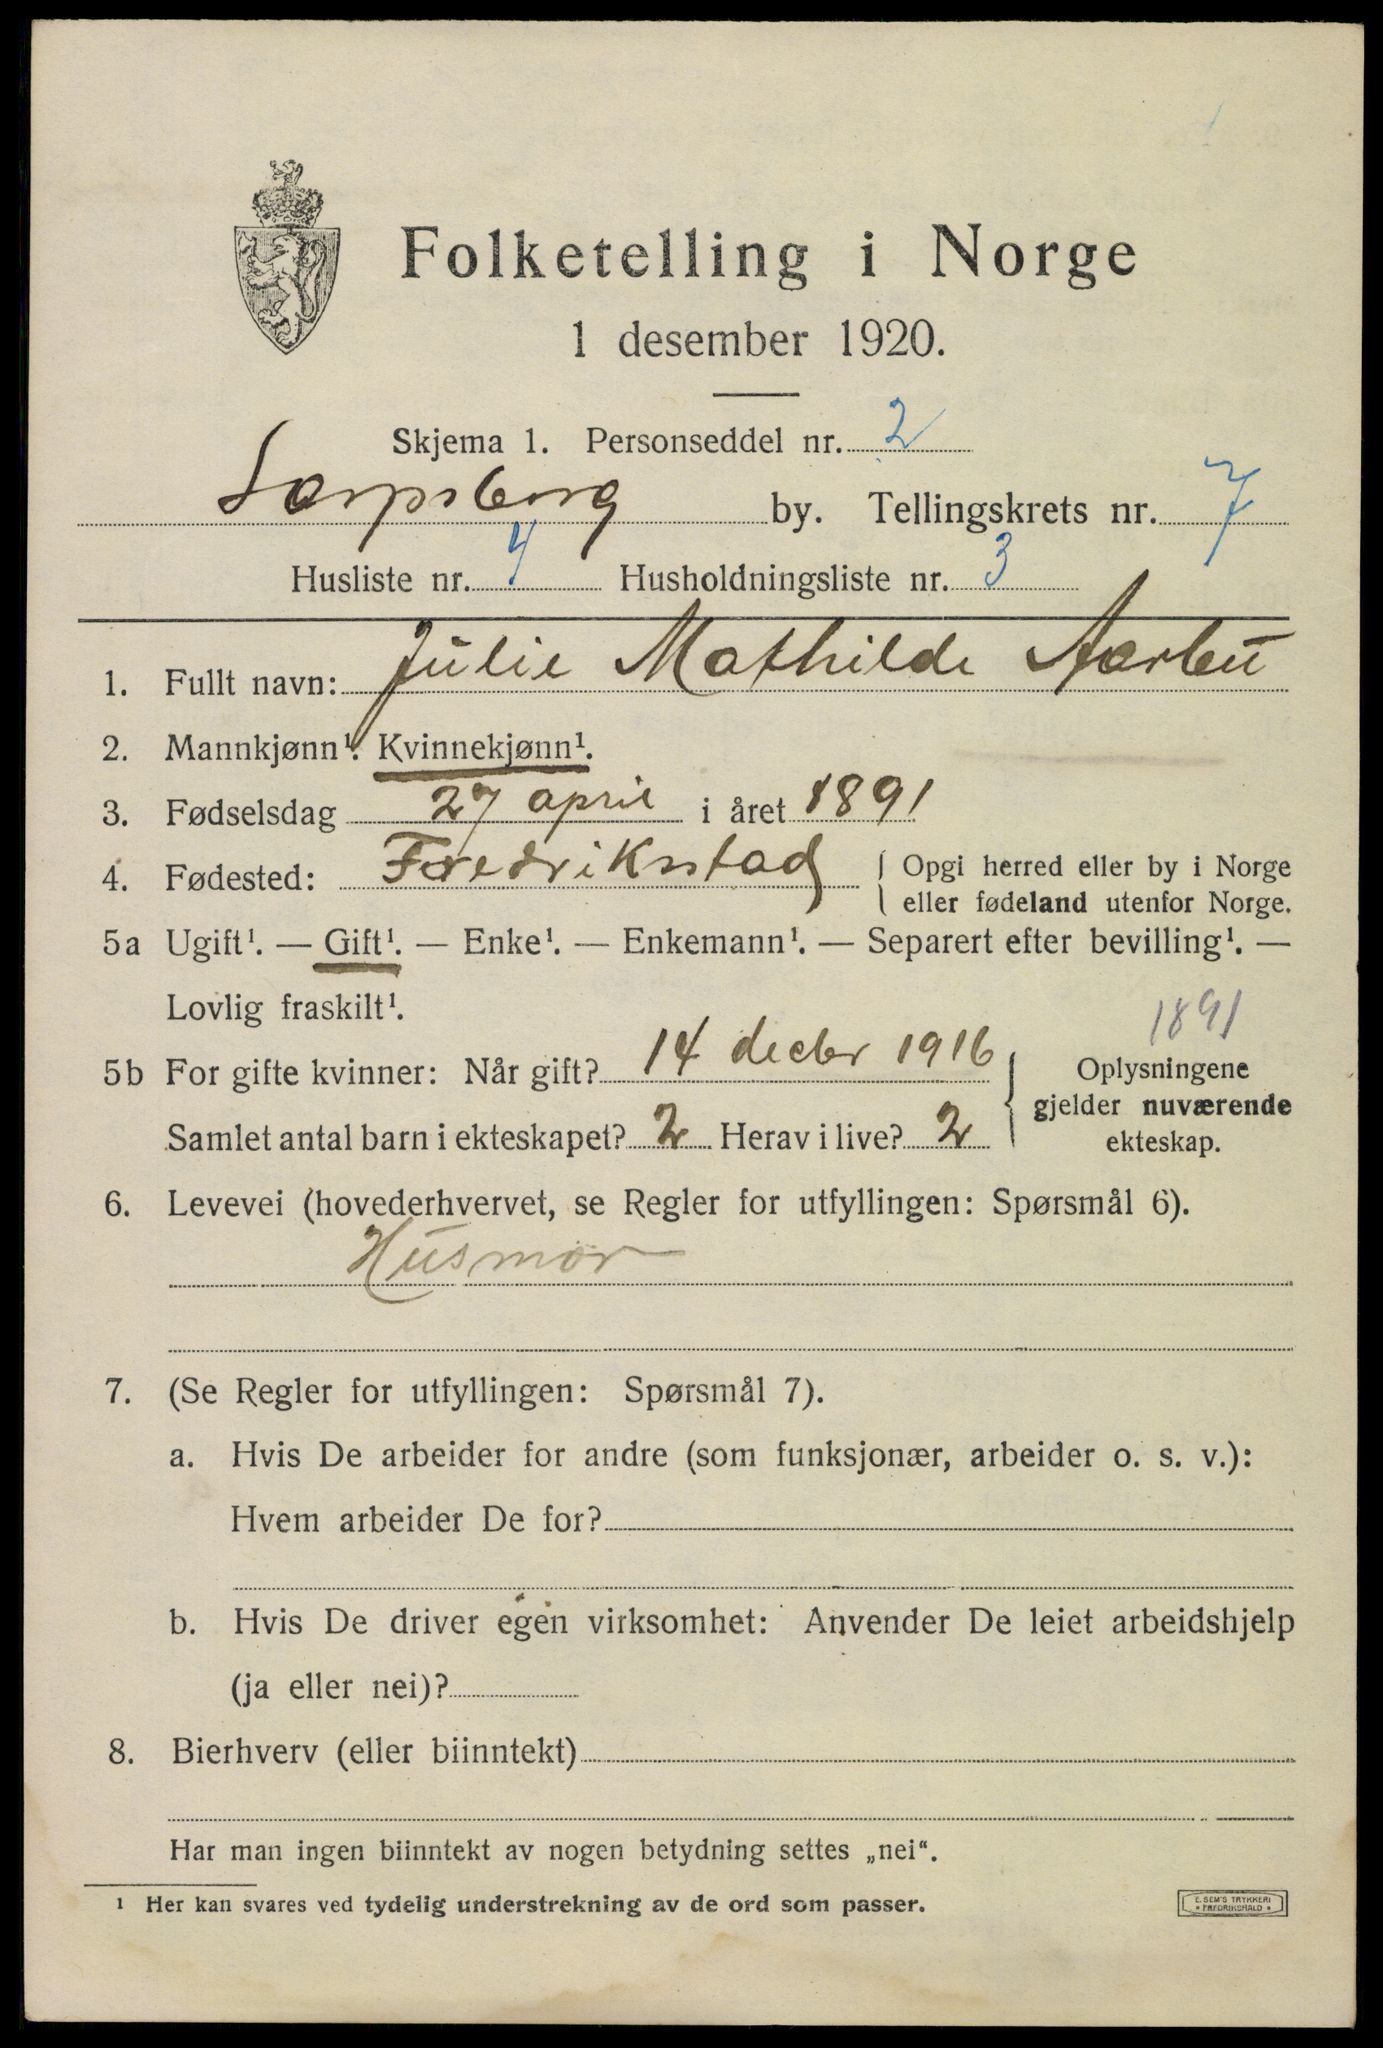 Folketelling i Norge
1 desember 1920.
Skjema 1. Personseddel nr. 2
Sarpsborg by. Tellingskrets nr. 7
Husliste nr. 4 Husholdningsliste nr. 3
1. Fullt navn: Julie Mathilde Aarbu
2. Mannkjønn¹. Kvinnekjønn¹.
3. Fødselsdag 27 april i året 1891
4. Fødested: Fredrikstad { Opgi herred eller by i Norge
eller fødeland utenfor Norge.
5a Ugift¹. — Gift¹. — Enke¹. — Enkemann¹. — Separert efter bevilling¹. —
Lovlig fraskilt¹.
1891
5b For gifte kvinner: Når gift? 14 decbr 1916
Samlet antal barn i ekteskapet? 2 Herav i live? 2
Oplysningene
gjelder nuværende
ekteskap.
6. Levevei (hovederhvervet, se Regler for utfyllingen: Spørsmål 6).
Husmor
7. (Se Regler for utfyllingen: Spørsmål 7).
a. Hvis De arbeider for andre (som funksjonær, arbeider o. s. v.):
Hvem arbeider De for?
b. Hvis De driver egen virksomhet: Anvender De leiet arbeidshjelp
(ja eller nei)?
8. Bierhverv (eller biinntekt)
Har man ingen biinntekt av nogen betydning settes „nei“.
¹ Her kan svares ved tydelig understrekning av de ord som passer.
E. SEM'S TRYKKERI
* FREDRIKSHALD *